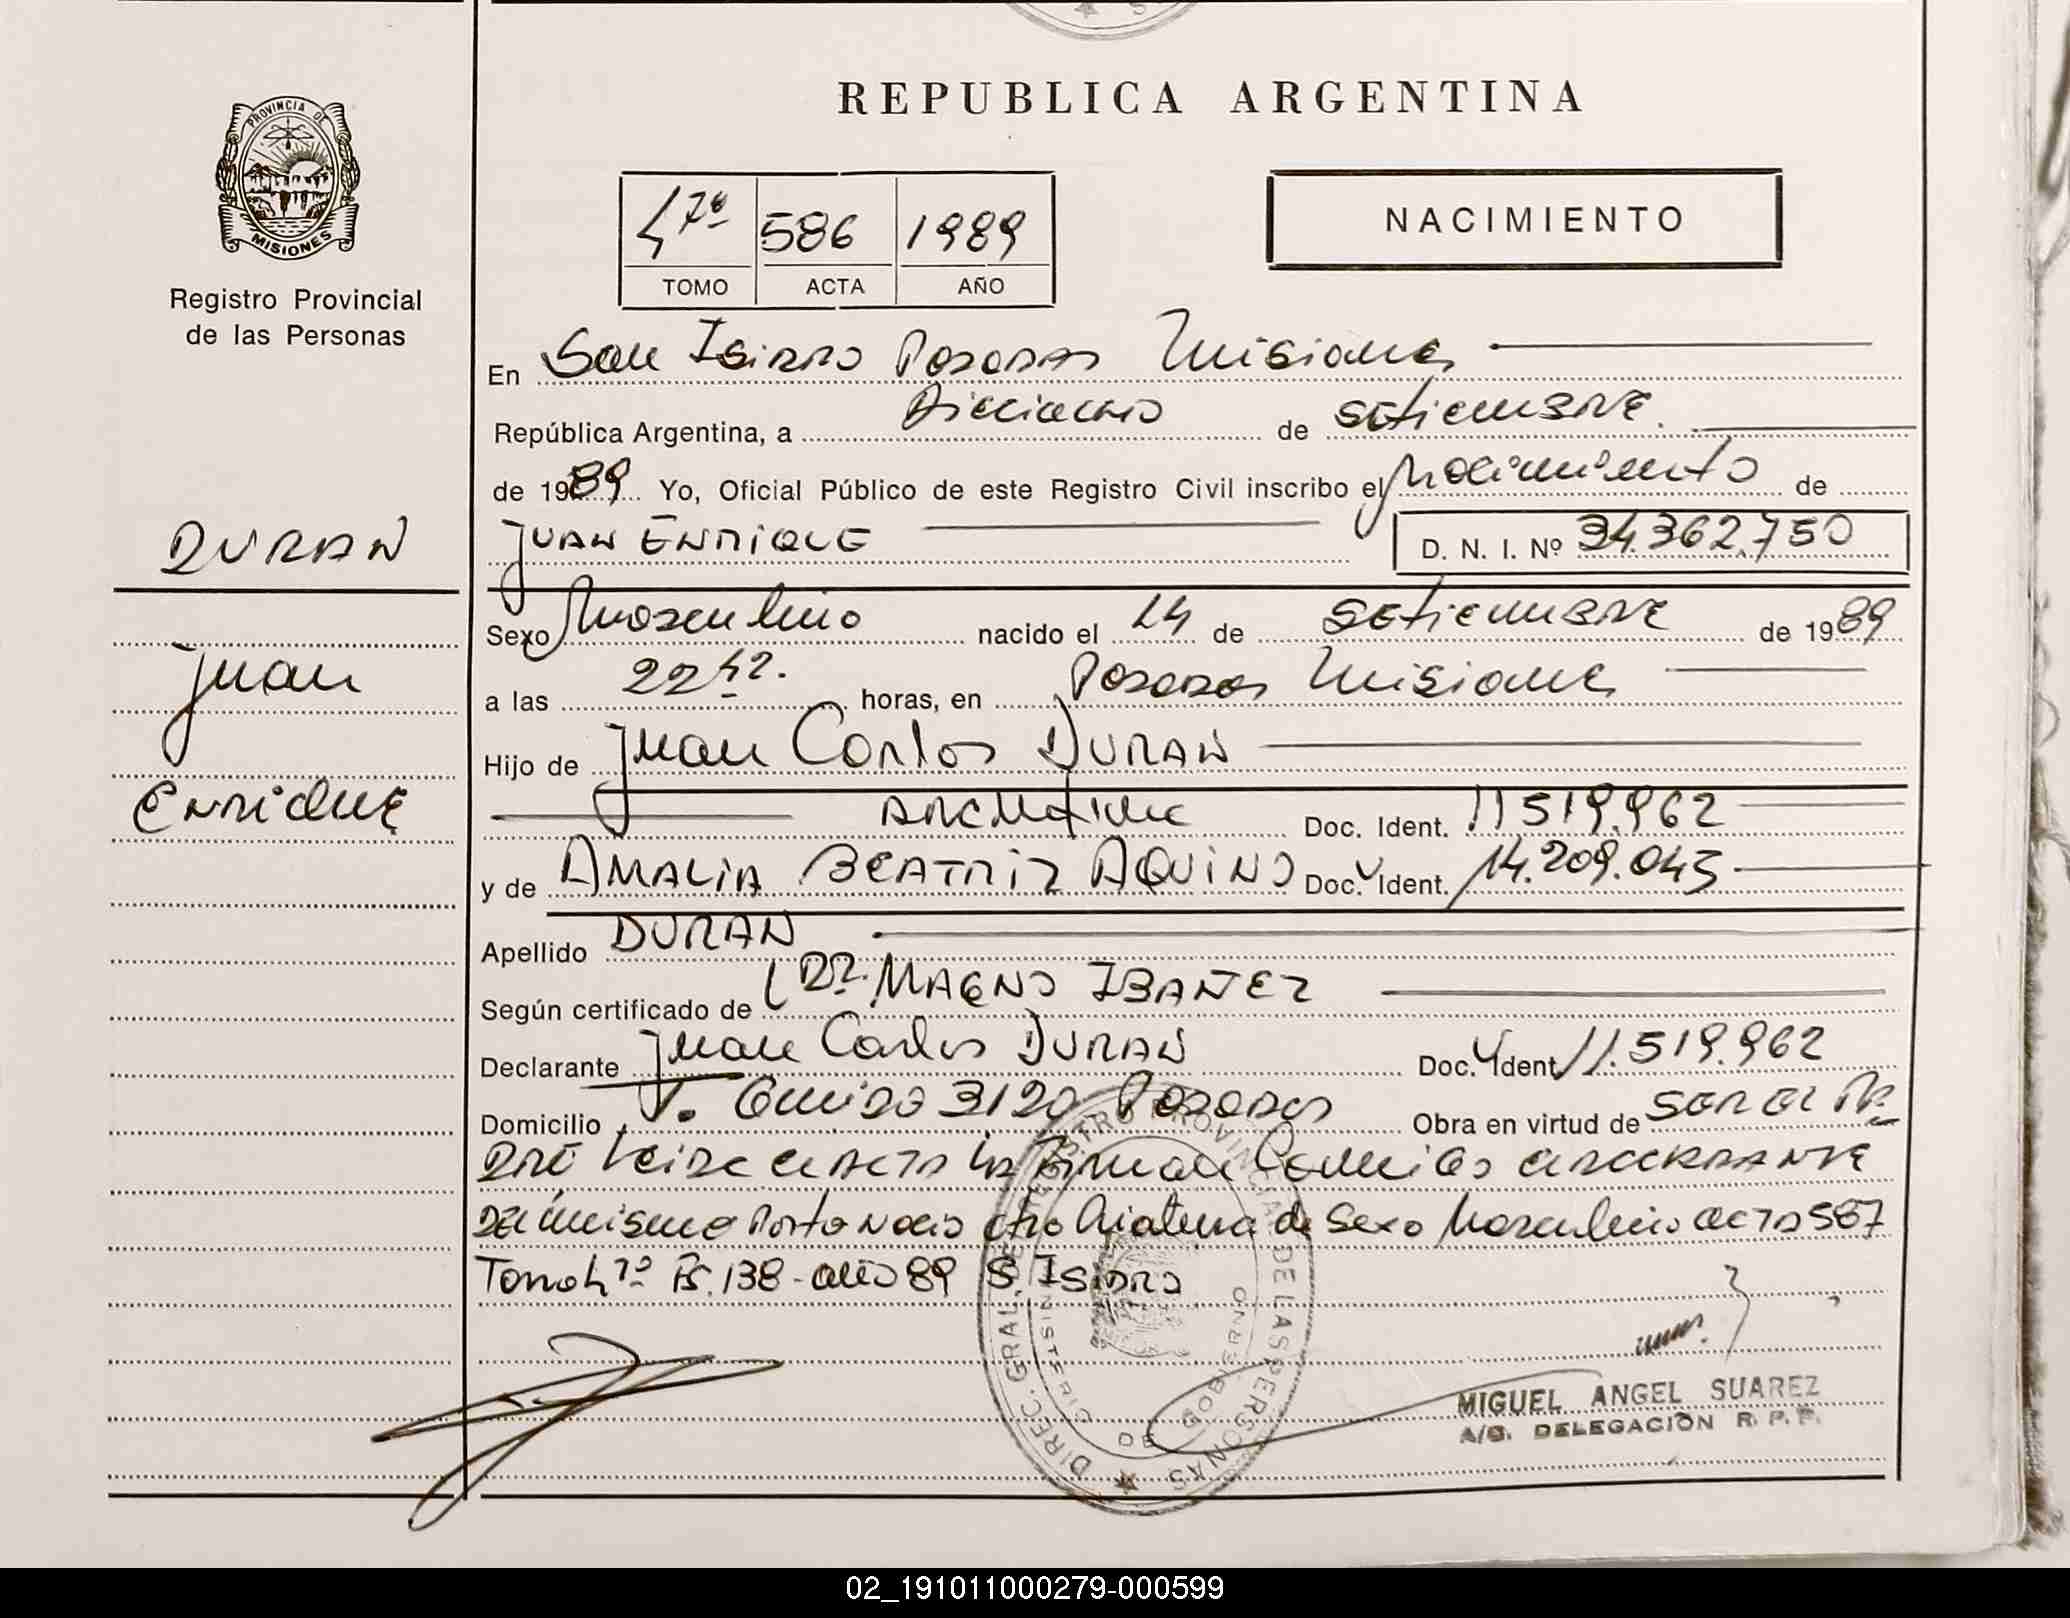 REPUBLICA ARGENTINA
PROVINCIA DE
MISIONES
Registro Provincial
de las Personas
4 7º 586 1989
TOMO ACTA AÑO
NACIMIENTO
En San Isidro Posadas Misiones
República Argentina, a Dieciocho de setiembre.
de 1989 Yo, Oficial Público de este Registro Civil inscribo el nacimiento de
DURAN
JUAN ENRIQUE D. N. I. Nº 34.362.750
Juan
Enrique
Sexo Masculino nacido el 14 de setiembre de 1989
a las 22 hs. horas, en Posadas Misiones
Hijo de Juan Carlos DURAN
Argentino Doc. Ident. 11519.962
y de AMALIA BEATRIZ AQUINO Doc. Ident. 14.209.045
Apellido DURAN
Según certificado de Dr. MAGNO IBAÑEZ
Declarante Juan Carlos DURAN Doc. Ident 11.519.962
Domicilio 3120 Posadas Obra en virtud de SER EL PA
DRE Leida el ACTA LA Firman Conmigo el DECLARANTE
DEL mismo Parto Nacio otro Criatura de Sexo Masculino acta 587
Tomo 4 7º Fs. 138 - año 89 S. Isidro
DIREC. GRAL. REGISTRO PROVINCIAL DE LAS PERSONAS
MINISTERIO DE GOBIERNO
MIGUEL ANGEL SUAREZ
A/G. DELEGACIÓN R. P. P.
02_191011000279-000599